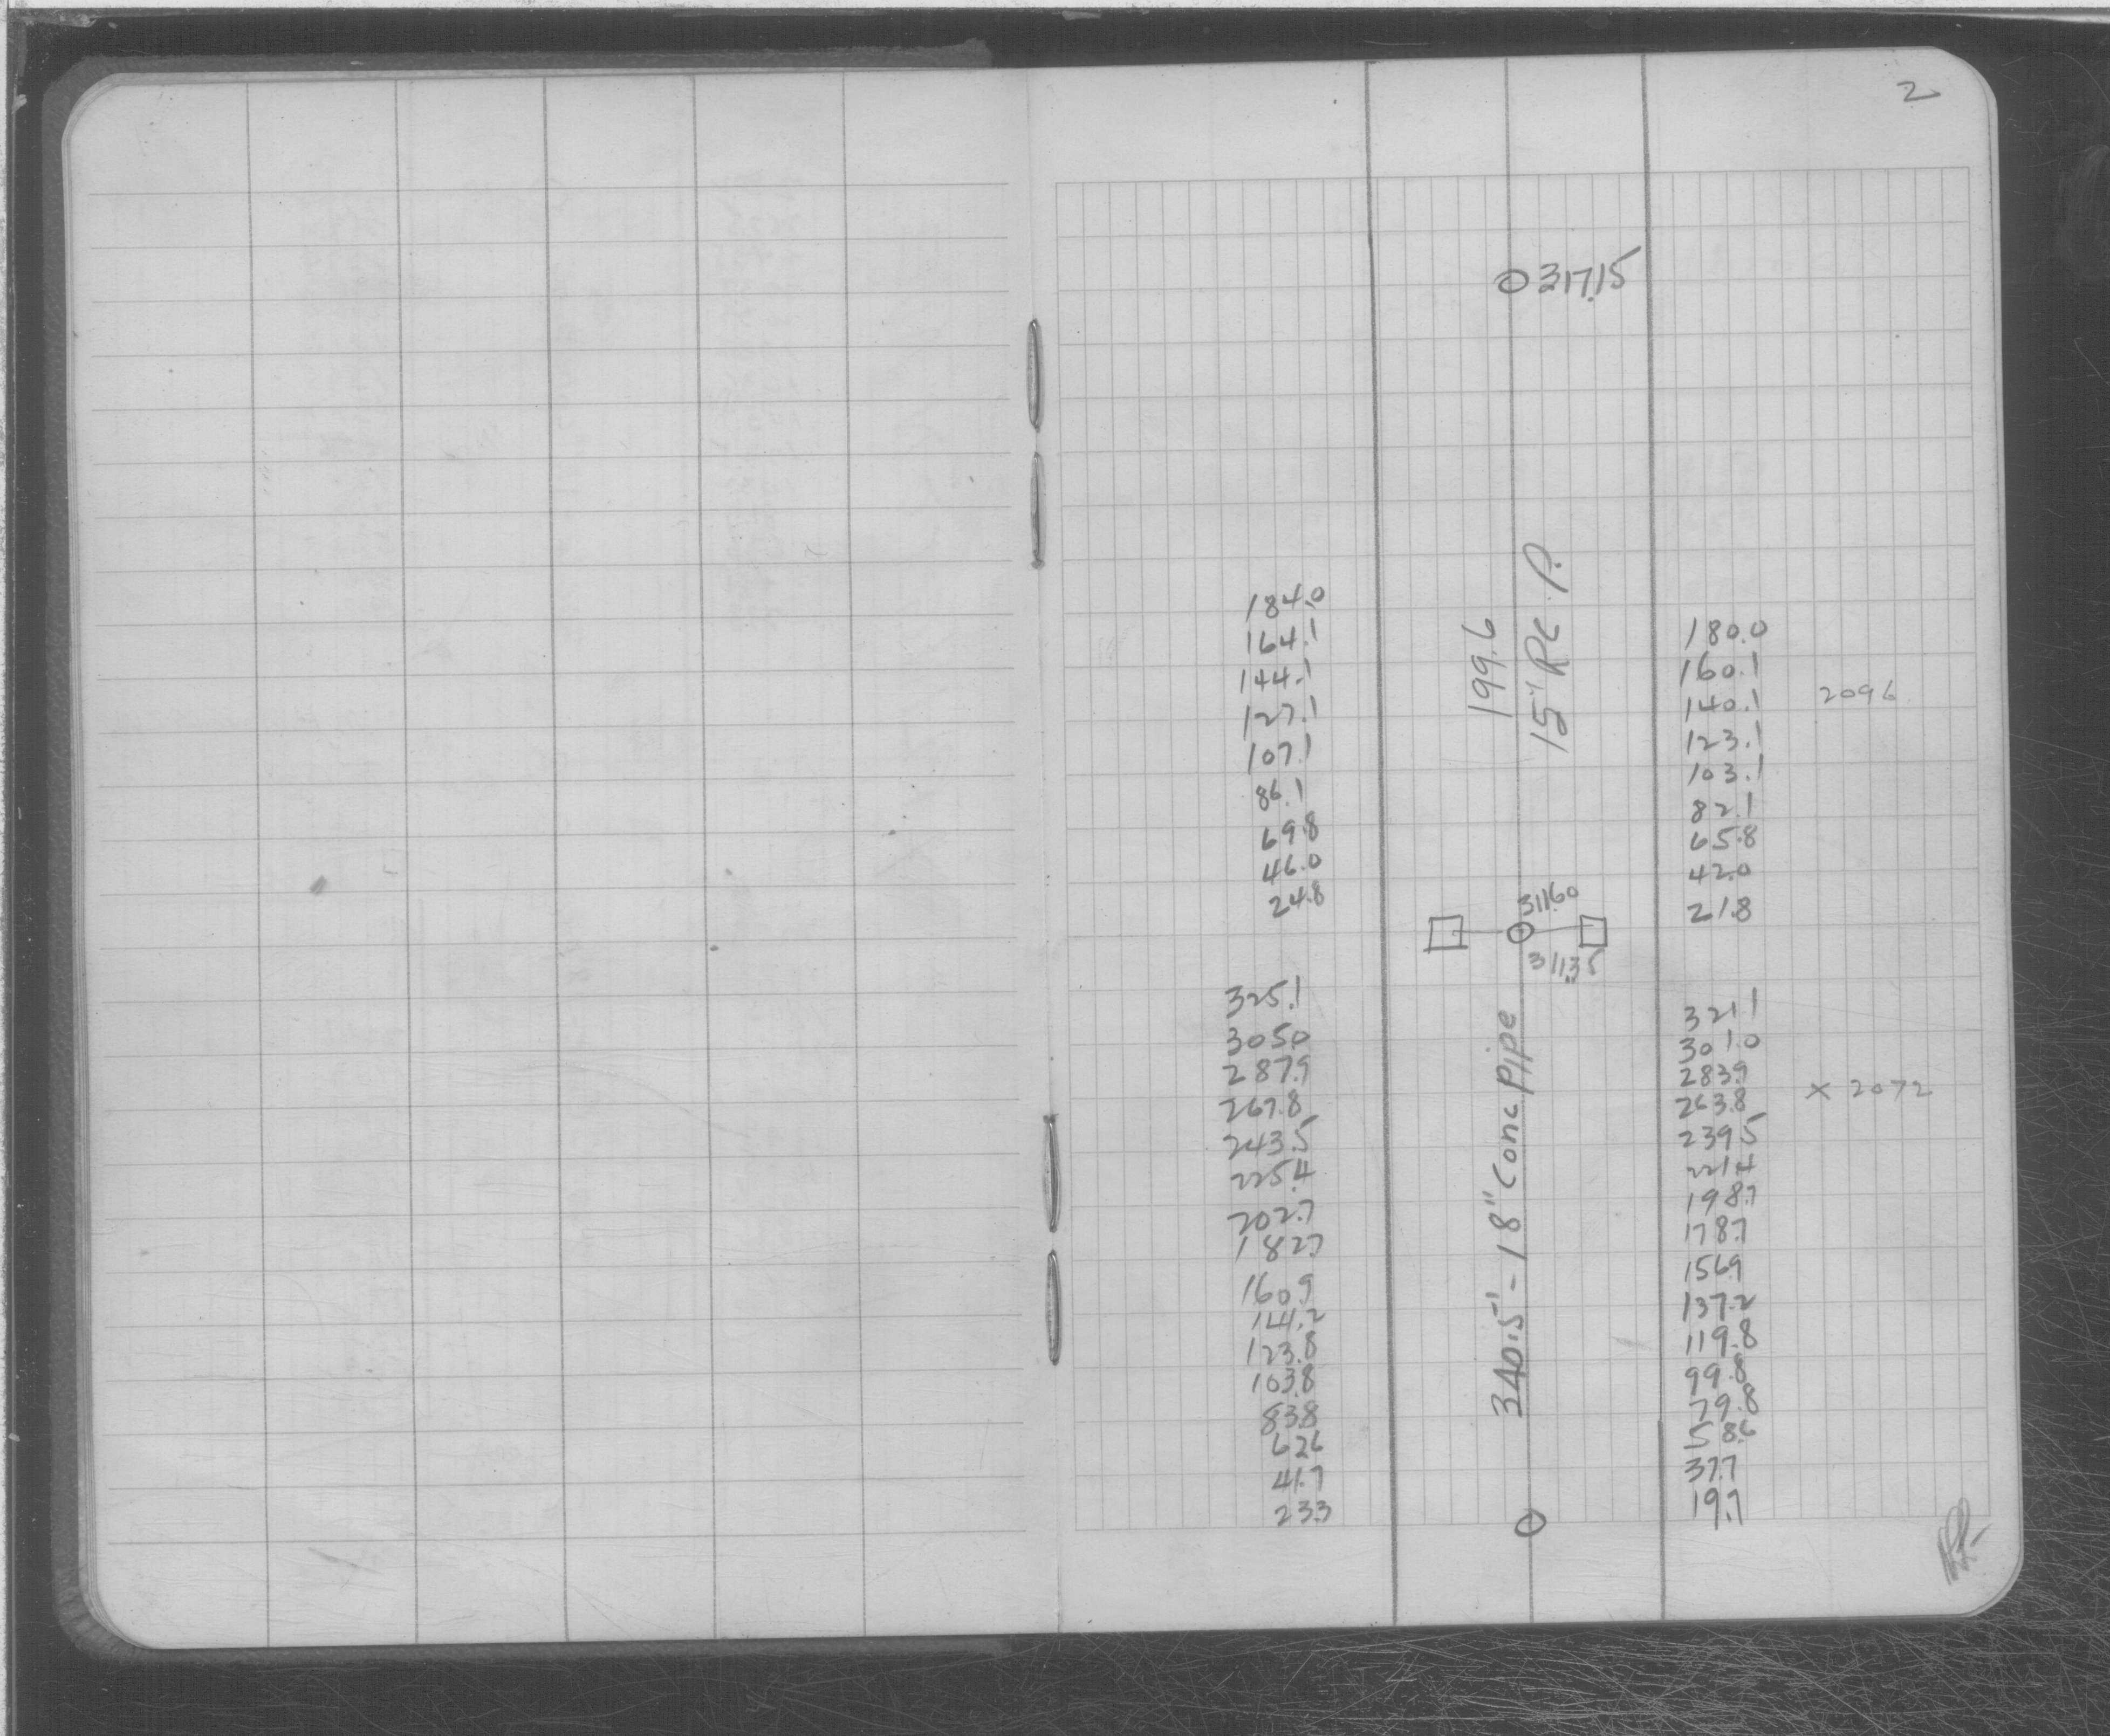 2
317.15
184.0
164.1
144.1
127.1
107.1
86.1
69.8
46.0
24.8
199.6
15" RC P.
180.0
160.1
140.1
123.1
103.1
82.1
65.8
42.0
21.8
2096
311.60
311.35
325.1
305.0
287.9
267.8
243.5
225.4
202.7
182.7
160.9
141.2
123.8
103.8
83.8
62.6
41.7
23.3
340.5' - 18" Conc Pipe
321.1
301.0
283.9
263.8
239.5
221.4
198.7
178.7
156.9
137.2
119.8
99.8
79.8
58.6
37.7
19.7
x 2072